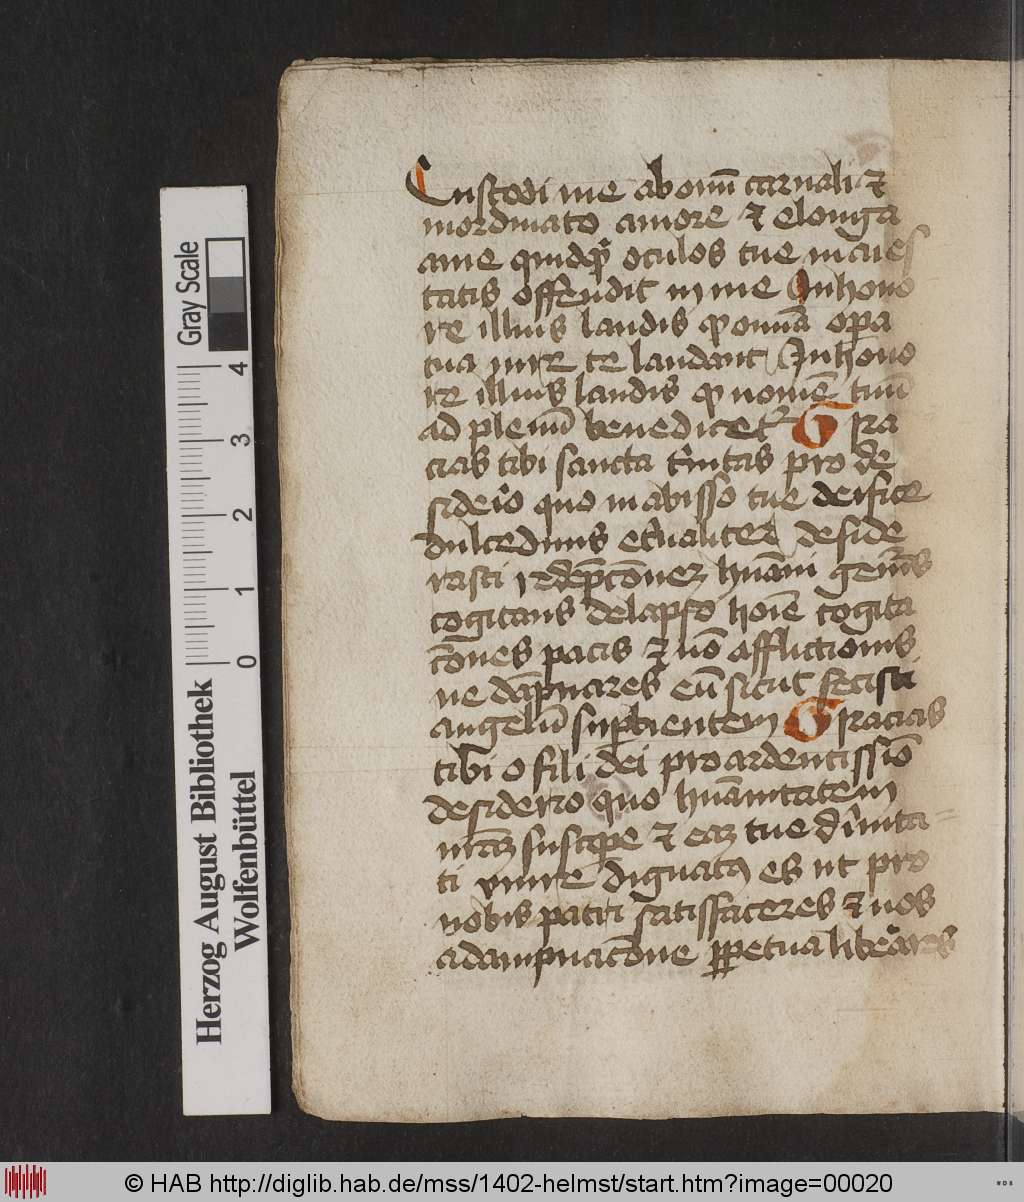 Custodi me ab om̄i carnali ⁊
inordinato amore ⁊ elonga
a me quidq̄ oculos tue maies
tatis offendit in me In hono
re illius laudis q̄ om̄ia opa
tua mire te laudant In hono
re illius laudis q̄ nomē tuū
ad plenū benedicet᷑ Gra
cias tibi sancta t̓nitas pro de
side̓io quo in abisso tue deifice
dulcedinis et̓naliter deside
rasti redēpcōnez hūani gen̓is
cogitans de lapso hoīe cogita
cōnes pacis ⁊ nō afflictionis
ne dāpnares eū sicut fecisti
angelū supbientem Gracias
tibi o fili dei pro ardentissīo
desiderio quo hūanitatem
nr̄az suscipe ⁊ eaz tue diuinita
ti vnire dignatꝰ es ut pro
nobis pati satisfaceres ⁊ nos
a dampnacōne ppetua liberares
Gray Scale
4 3 2 1 0
Herzog August Bibliothek
Wolfenbüttel
© HAB http://diglib.hab.de/mss/1402-helmst/start.htm?image=00020